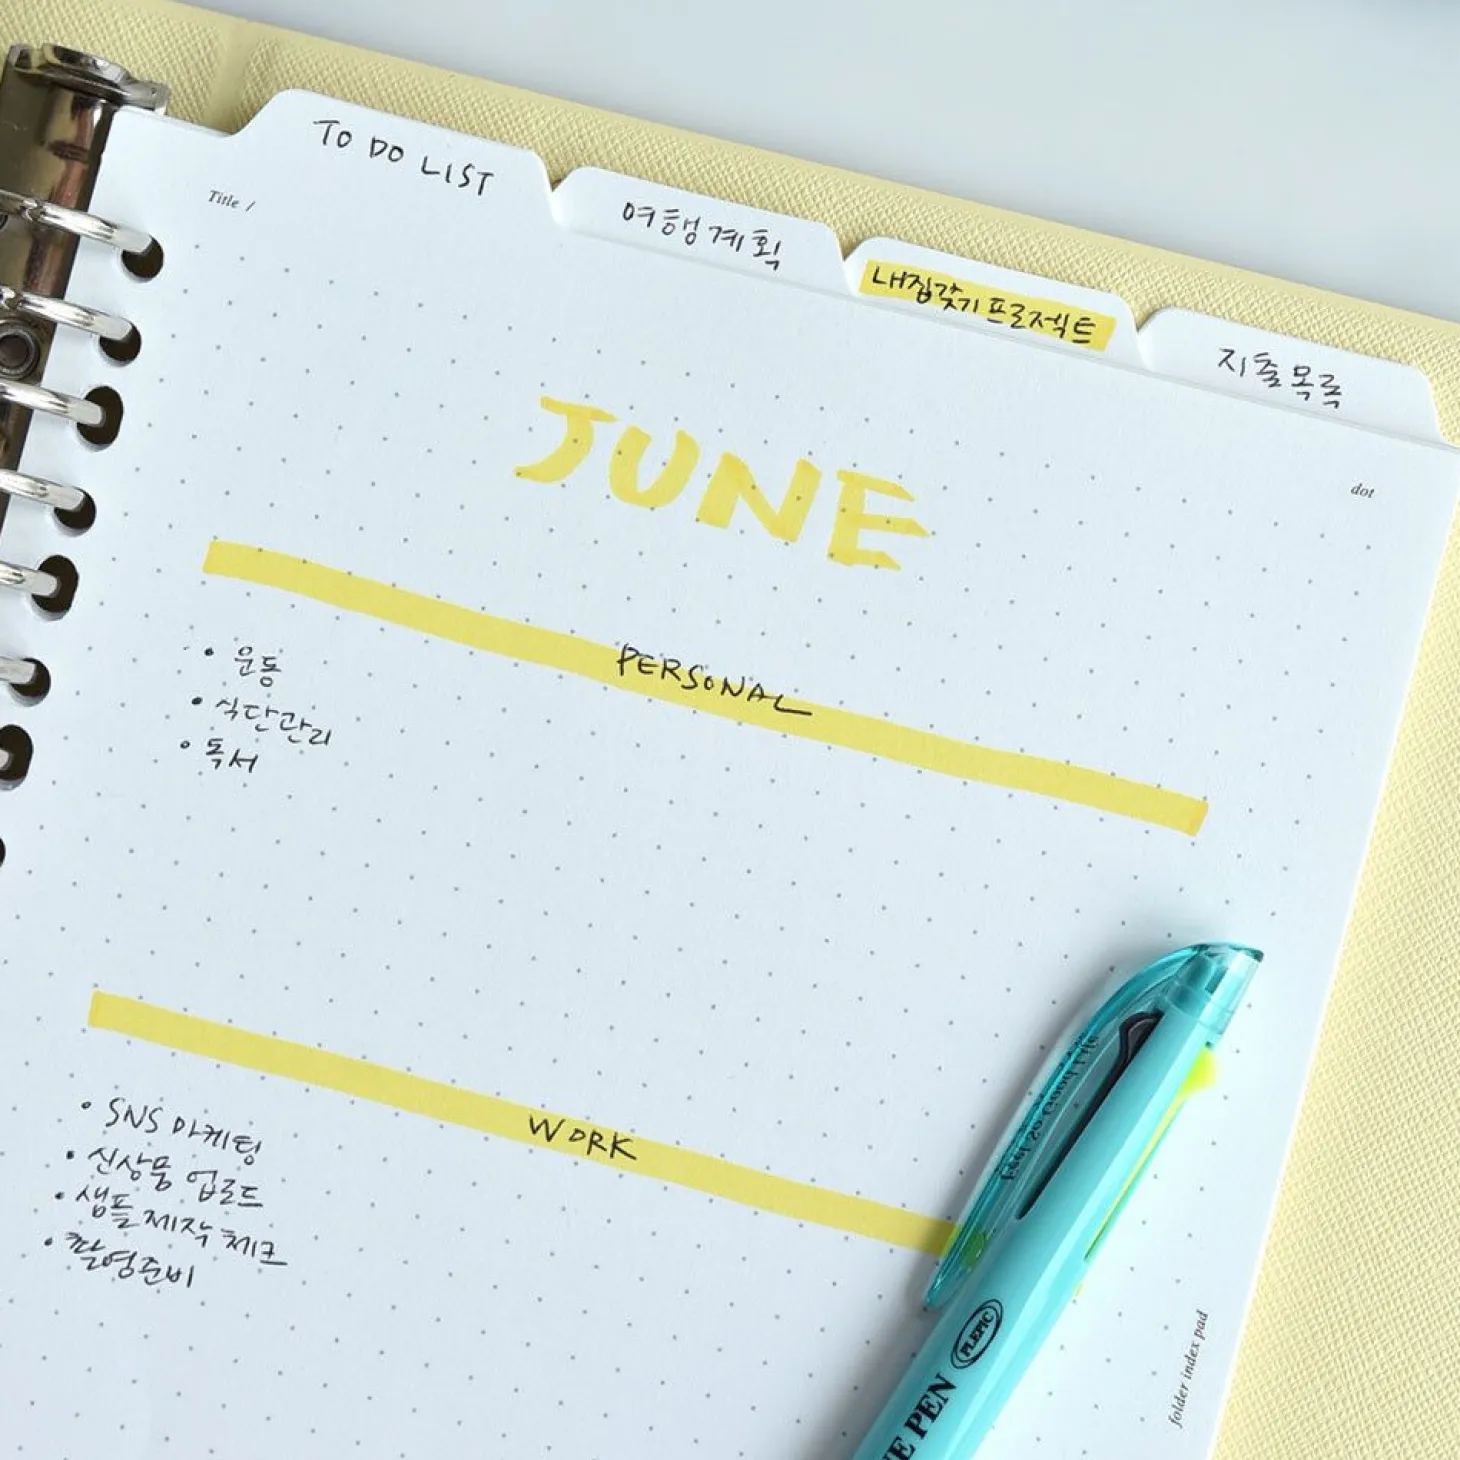 TO DO LIST
여행계획
내집갖기프로젝트
지출목록
Title /
dot
JUNE
PERSONAL
• 운동
• 식단관리
• 독서
WORK
• SNS 마케팅
• 신상품 업로드
• 샘플제작 체크
• 촬영준비
Feel so Good Life
PLEPIC
E PEN
folder index pad